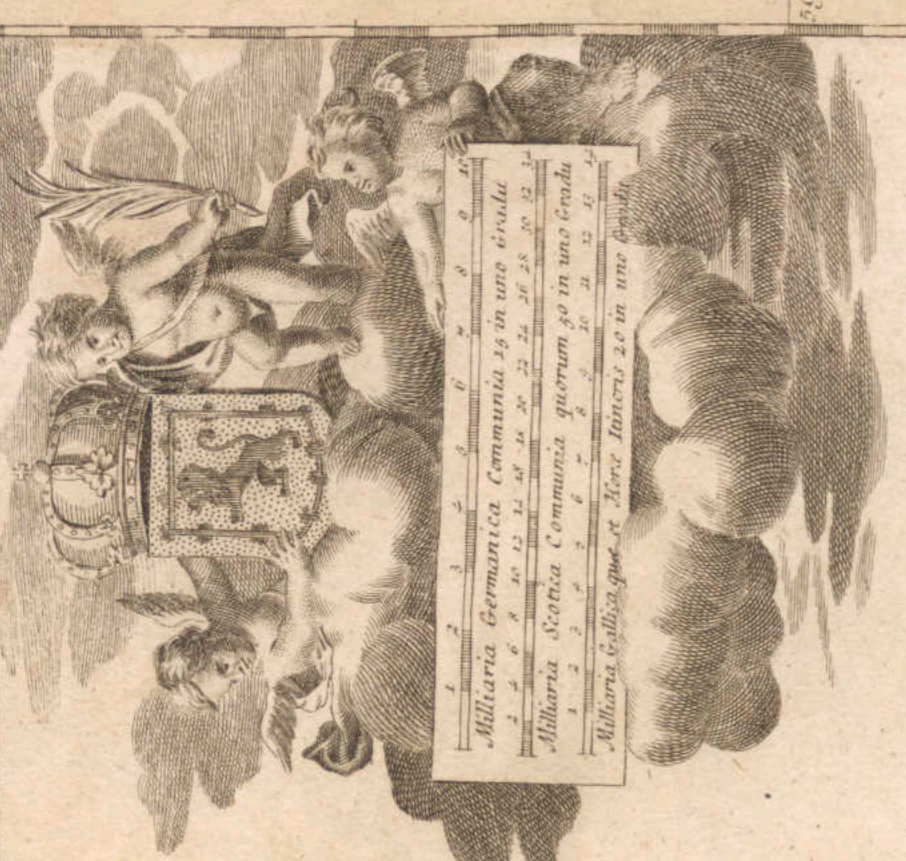 1 2 3 4 5 6 7 8 9 10
Milliaria Germanica Communia 15 in uno Gradu
2 4 6 8 10 12 14 16 18 20 22 24 26 28 30 32 34
Milliaria Scotica Communia quorum 50 in uno Gradu
1 2 3 4 5 6 7 8 9 10 11 12 13 14
Milliaria Gallica que et Horæ Itineris 20 in uno Gradu